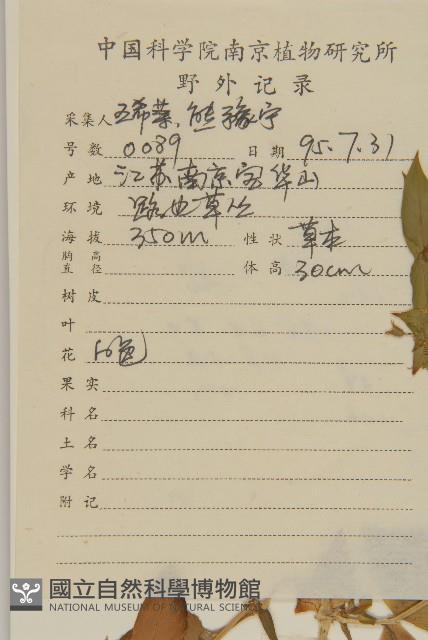 中国科学院南京植物研究所
野外记录
采集人 王希蕖、熊豫宁
号数 0089 日期 95.7.31
产地 江苏南京宝华山
环境 路边草丛
海拔 350m 性状 草本
胸高直径 体高 30cm
树皮
叶
花 白色
果实
科名
土名
学名
附记
國立自然科學博物館
NATIONAL MUSEUM OF NATURAL SCIENCE